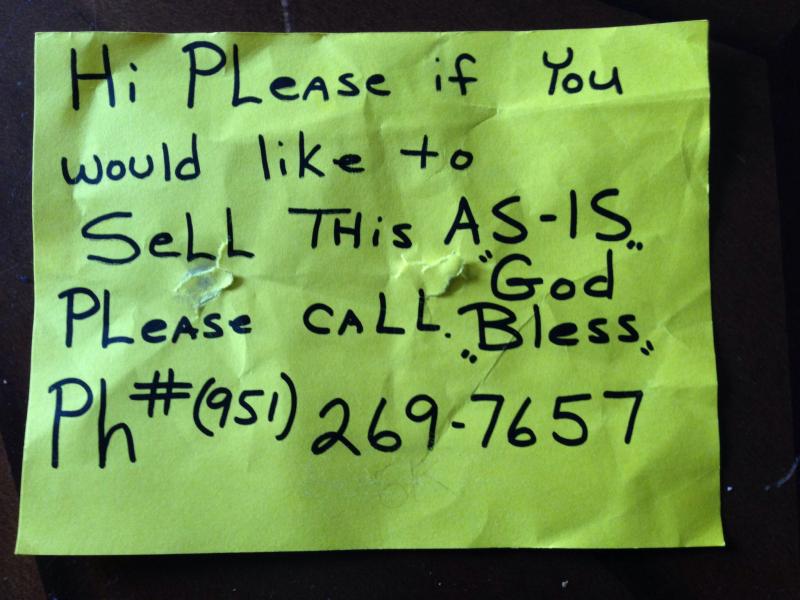 Hi PLease if You
would like to
SeLL THis AS-IS
PLease caLL. "God Bless"
Ph#(951) 269-7657